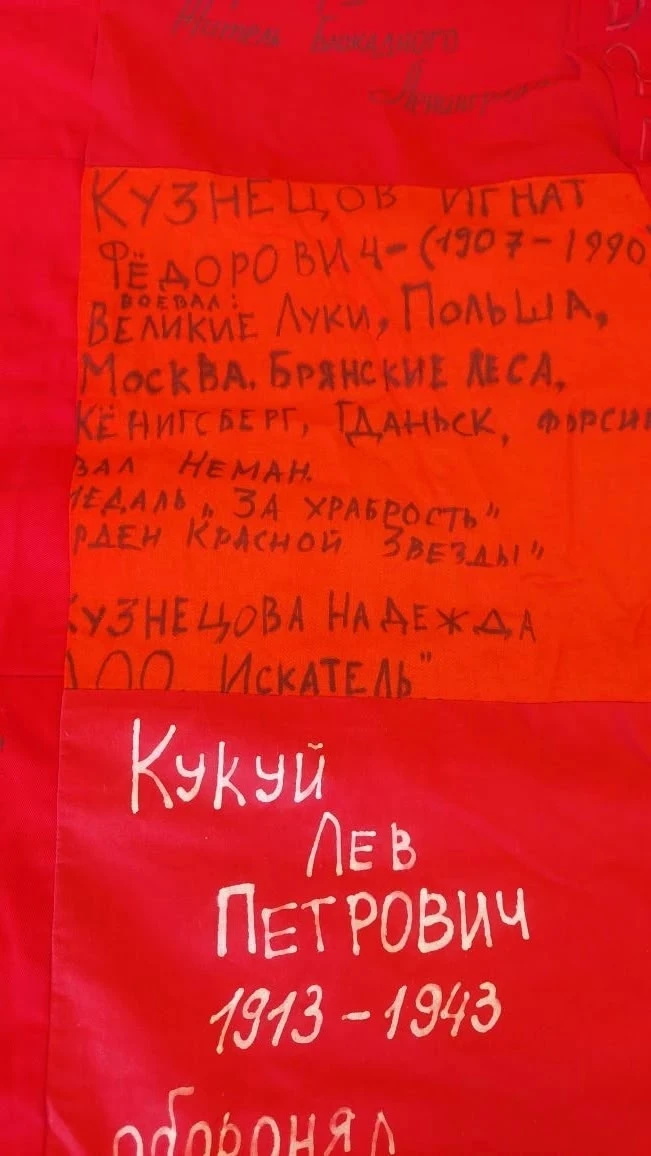 Житель Блокадного
КУЗНЕЦОВ ИГНАТ
ФЁДОРОВИЧ-(1907-1990
ВОЕВАЛ:
ВЕЛИКИЕ ЛУКИ, ПОЛЬША,
МОСКВА. БРЯНСКИЕ ЛЕСА,
КЁНИГСБЕРГ, ГДАНЬСК, ФОРСИ
ВАЛ НЕМАН.
МЕДАЛЬ „ЗА ХРАБРОСТЬ"
РДЕН КРАСНОЙ ЗВЕЗДЫ"
КУЗНЕЦОВА НАДЕЖДА
ЛОО ИСКАТЕЛЬ"
Кукуй
ЛЕВ
ПЕТРОВИЧ
1913-1943
оборонял